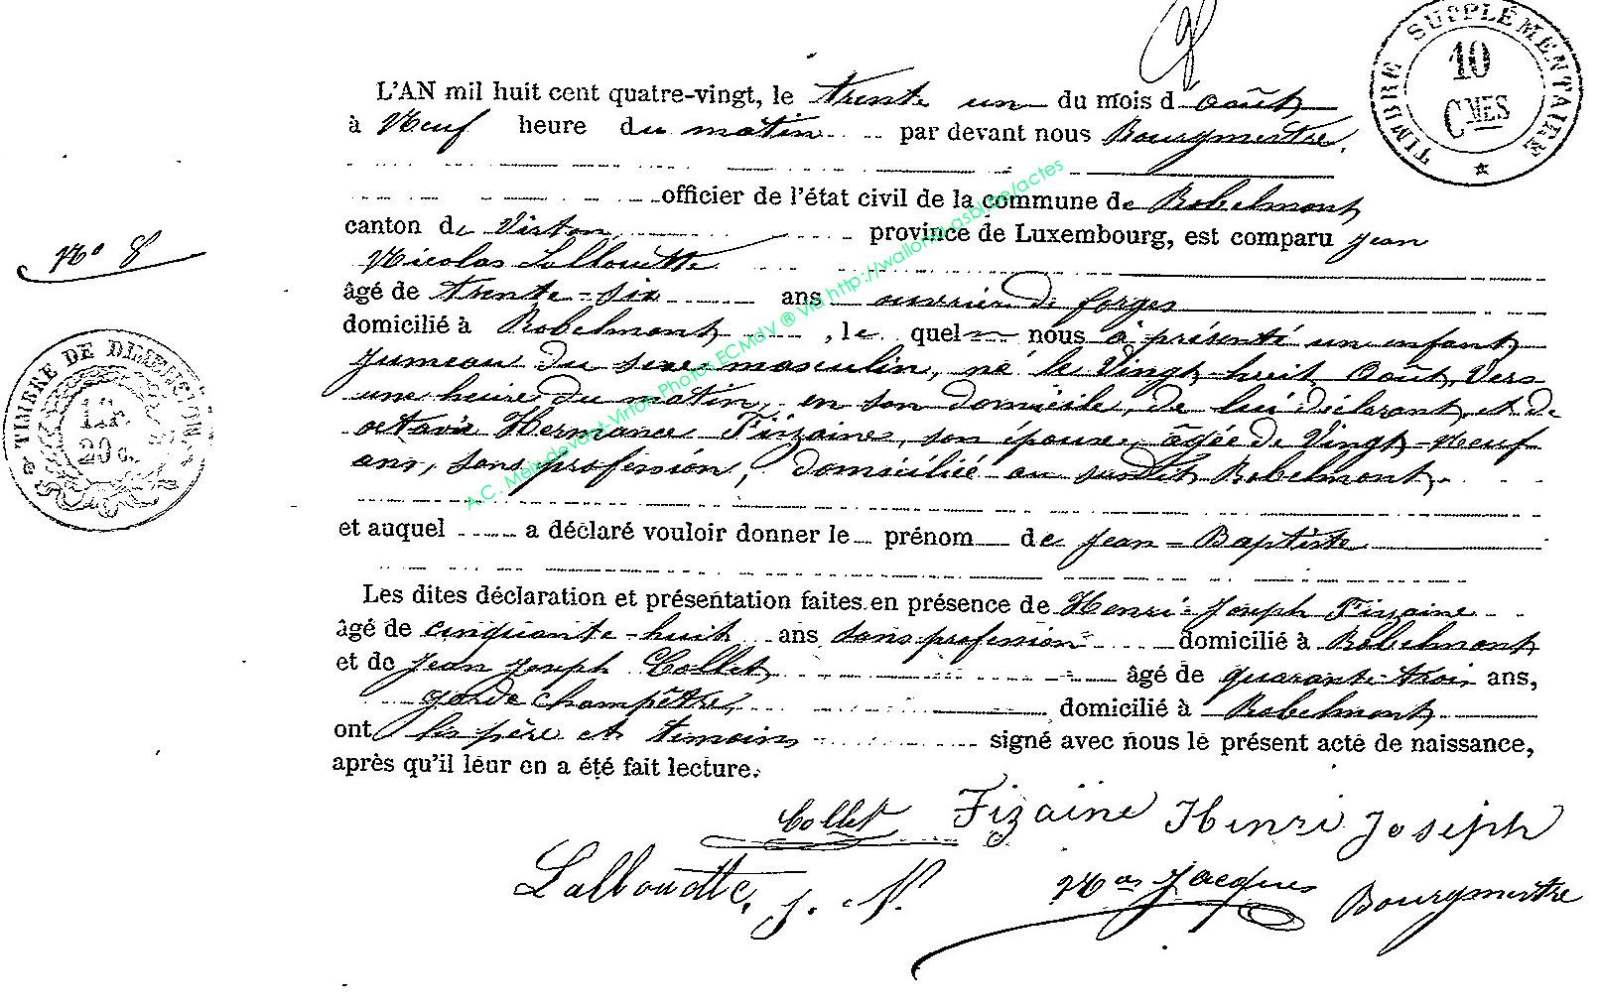 TIMBRE SUPPLÉMENTAIRE
10
CMES
L'AN mil huit cent quatre-vingt, le trente un du mois d'août
à Neuf heure du matin par devant nous Bourgmestre,
officier de l'état civil de la commune de Robelmont
canton de Virton, province de Luxembourg, est comparu Jean
Nicolas Lallouette
âgé de trente-six ans ouvrier de forges
domicilié à Robelmont, lequel nous a présenté un enfant
jumeau du sexe masculin, né le Vingt-huit Août, vers
une heure du matin, en son domicile, de lui déclarant, et de
octavie Hermance Fizaine, son épouse, âgée de Vingt-Neuf
ans, sans profession, domicilié au susdit Robelmont,
et auquel a déclaré vouloir donner le prénom de Jean-Baptiste
Les dites déclaration et présentation faites en présence de Henri-Joseph Fizaine
âgé de cinquante-huit ans sans profession domicilié à Robelmont
et de Jean Joseph Collet, âgé de quarante-trois ans,
garde champêtre, domicilié à Robelmont
ont les père et témoins signé avec nous le présent acte de naissance,
après qu'il leur en a été fait lecture.
No 8
TIMBRE DE DIMENSION
1 Fr.
20 c.
Collet Fizaine Henri Joseph
Lallouette, J. N. Nas Jacques Bourgmestre
A.C. Meix-devant-Virton Photos ECMdV ® Via http://wallonia-asbl.be/actes